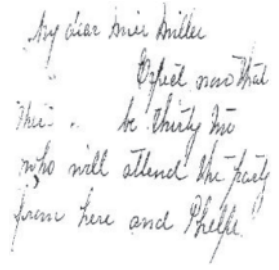 My dear Miss Miller
Expect now that
there be thirty two
who will attend the party
from here and Phelps